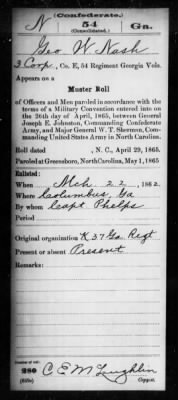 (Confederate.)
N 54 Ga.
(Consolidated.)
Geo W. Nash
3 Corp, Co. E, 54 Regiment Georgia Vols.
Appears on a
Muster Roll
of Officers and Men paroled in accordance with the
terms of a Military Convention entered into on
the 26th day of April, 1865, between General
Joseph E. Johnston, Commanding Confederate
Army, and Major General W. T. Sherman, Com-
manding United States Army in North Carolina.
Roll dated , N. C., April 29, 1865.
Paroled at Greensboro, North Carolina, May 1, 1865
Enlisted:
When Mch 22, 1862.
Where Columbus, Ga
By whom Capt Phelps
Period
Original organization K 37 Ga Regt
Present or absent Present
Remarks:
Number of roll:
280 C E McLaughlin
(639c) Copyist.